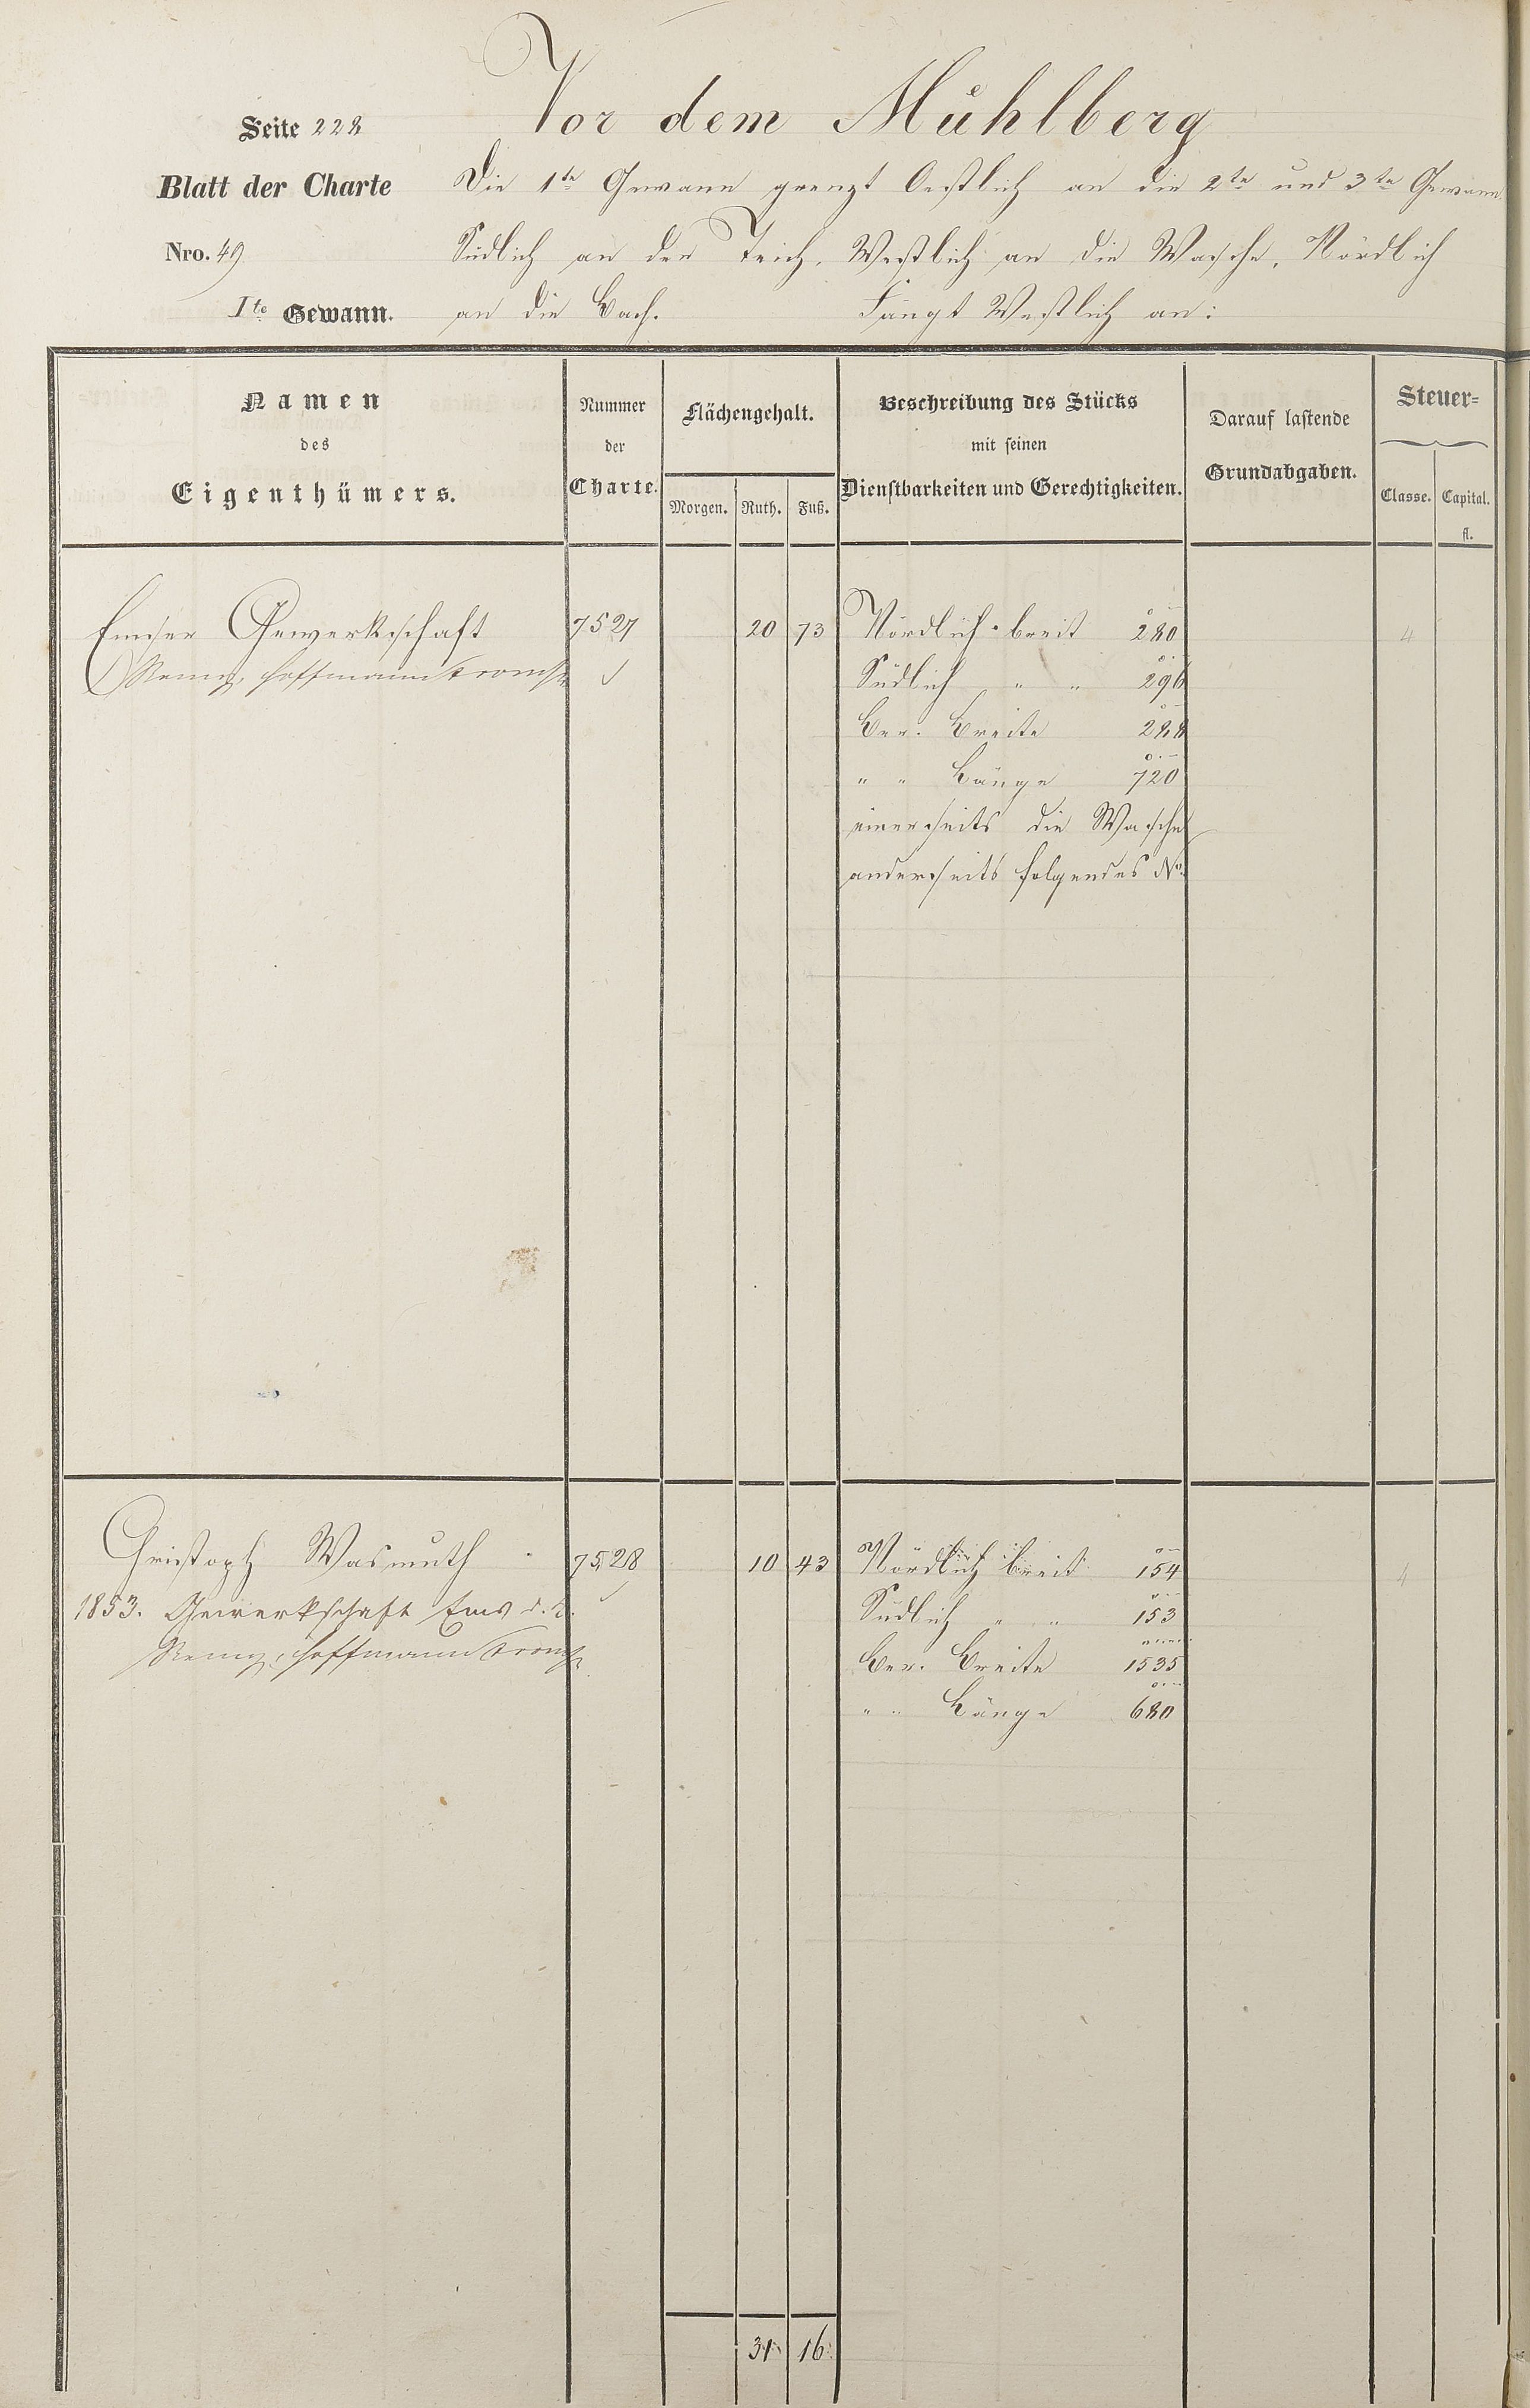 Vor dem Mühlberg
Seite 228
Blatt der Charte Die 1te Gewann grenzt Oestlich an die 2te und 3te Gewann
Nro. 49 Südlich an den Teich, Westlich an die Wasche, Nördlich
Ite Gewann. an die Bach. Fängt Westlich an:
Namen des Eigenthümers.
Nummer der Charte.
Flächengehalt.
Morgen. Ruth. Fuß.
Beschreibung des Stücks
mit seinen
Dienstbarkeiten und Gerechtigkeiten.
Darauf lastende
Grundabgaben.
Steuer=
Classe. Capital.
fl.
Emser Gewerkschaft 7527 20 73 Nördlich breit 280 4
Remy, Hoffmann Südlich " " 296
Ber. Breite 288
" " Länge 720
einerseits die Wasche
anderseits folgendes No.
Christoph Wasmuth 7528 10 43 Nördlich breit 154 4
1853. Gewerkschaft Ems Südlich " " 153
Remy, Hoffmann Ber. Breite 1535
" " Länge 680
31 16